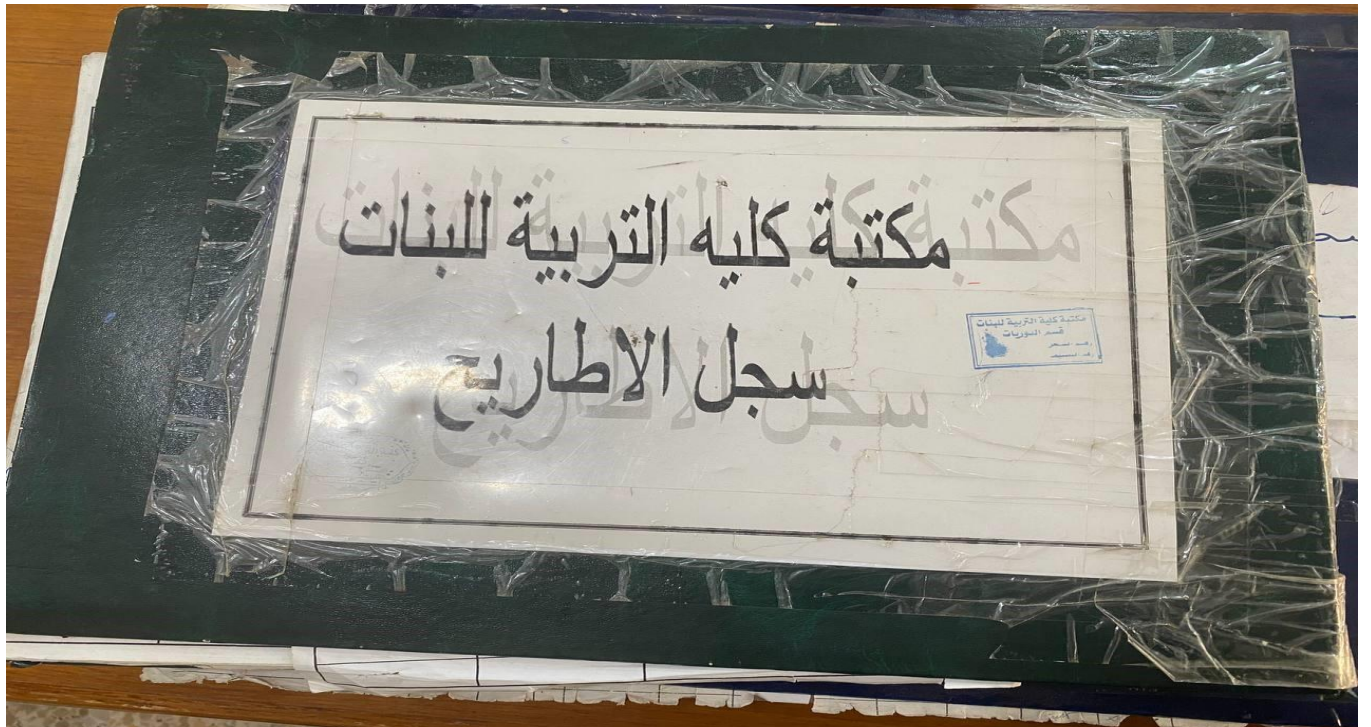 مكتبة كليه التربية للبنات
سجل الاطاريح
مكتبة كلية التربية للبنات
قسم الدوريات